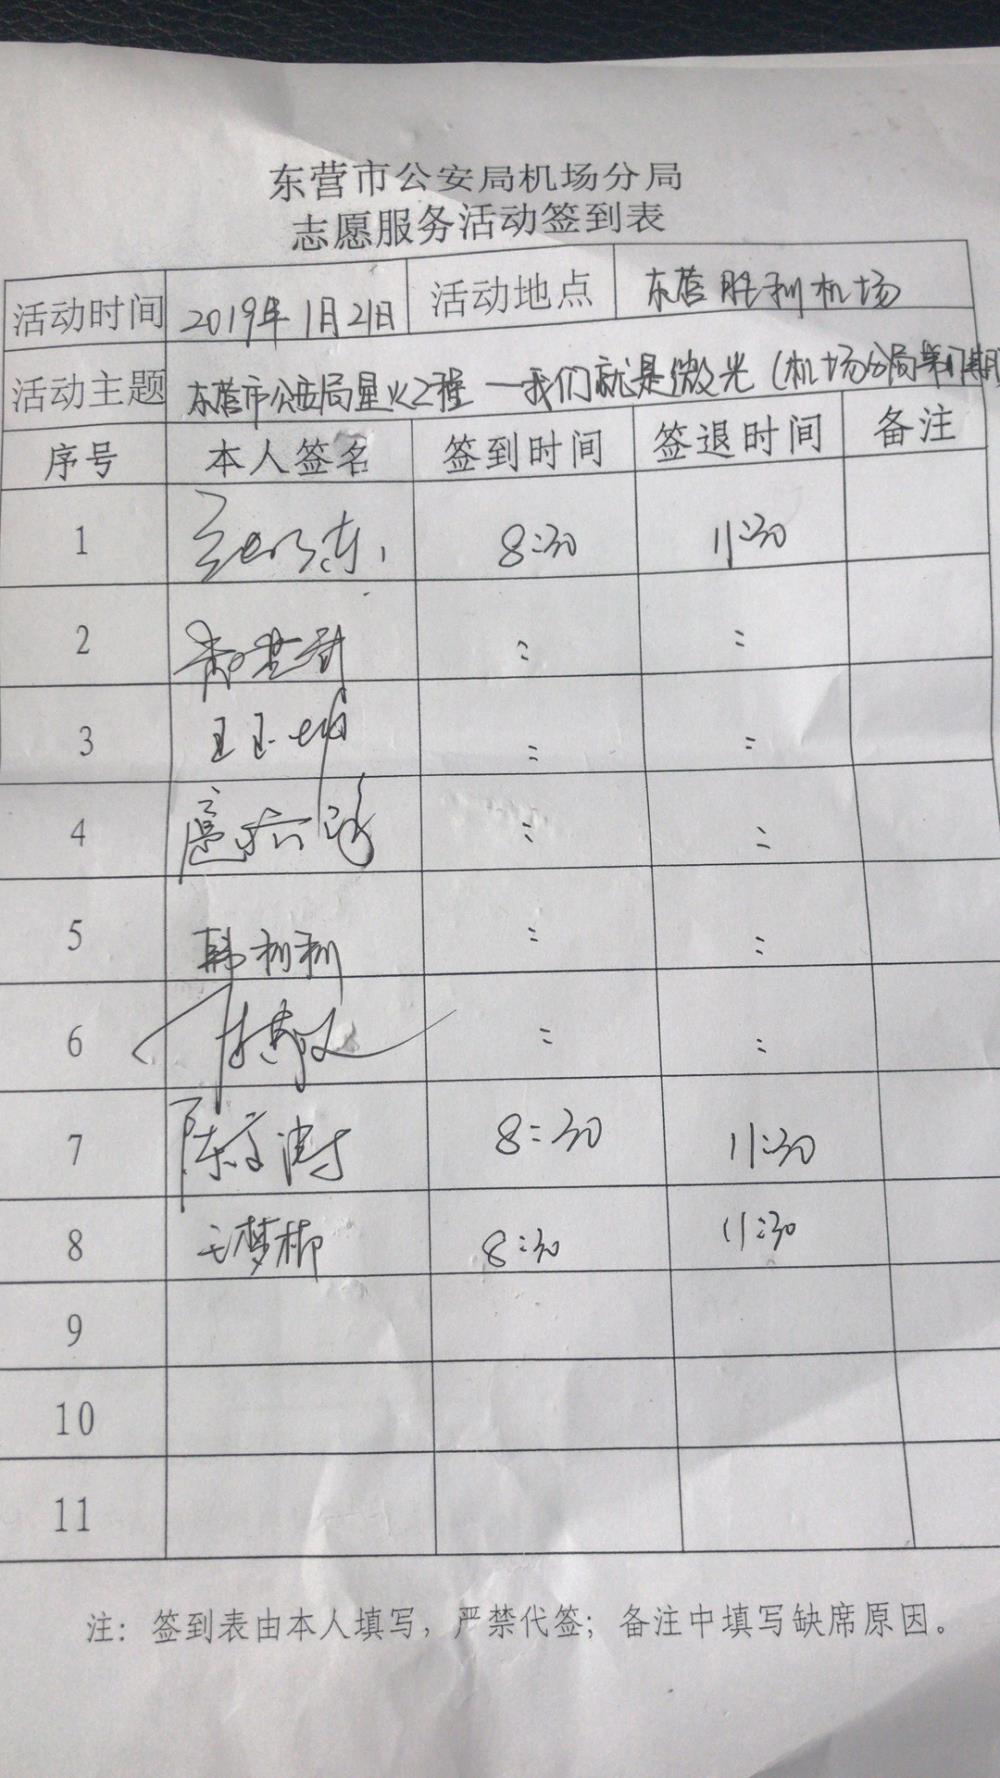 东营市公安局机场分局
志愿服务活动签到表
活动时间 2019年1月21日 活动地点 东营胜利机场
活动主题 东营市公安局星火工程—我们就是微光(机场分局第
序号 本人签名 签到时间 签退时间 备注
1 8:30 11:30
2 :: ::
3 王玉坤 :: ::
4 :: ::
5 韩利利 :: ::
6 :: ::
7 陈文涛 8:30 11:30
8 王梦柳 8:30 11:30
9
10
11
注：签到表由本人填写，严禁代签；备注中填写缺席原因。